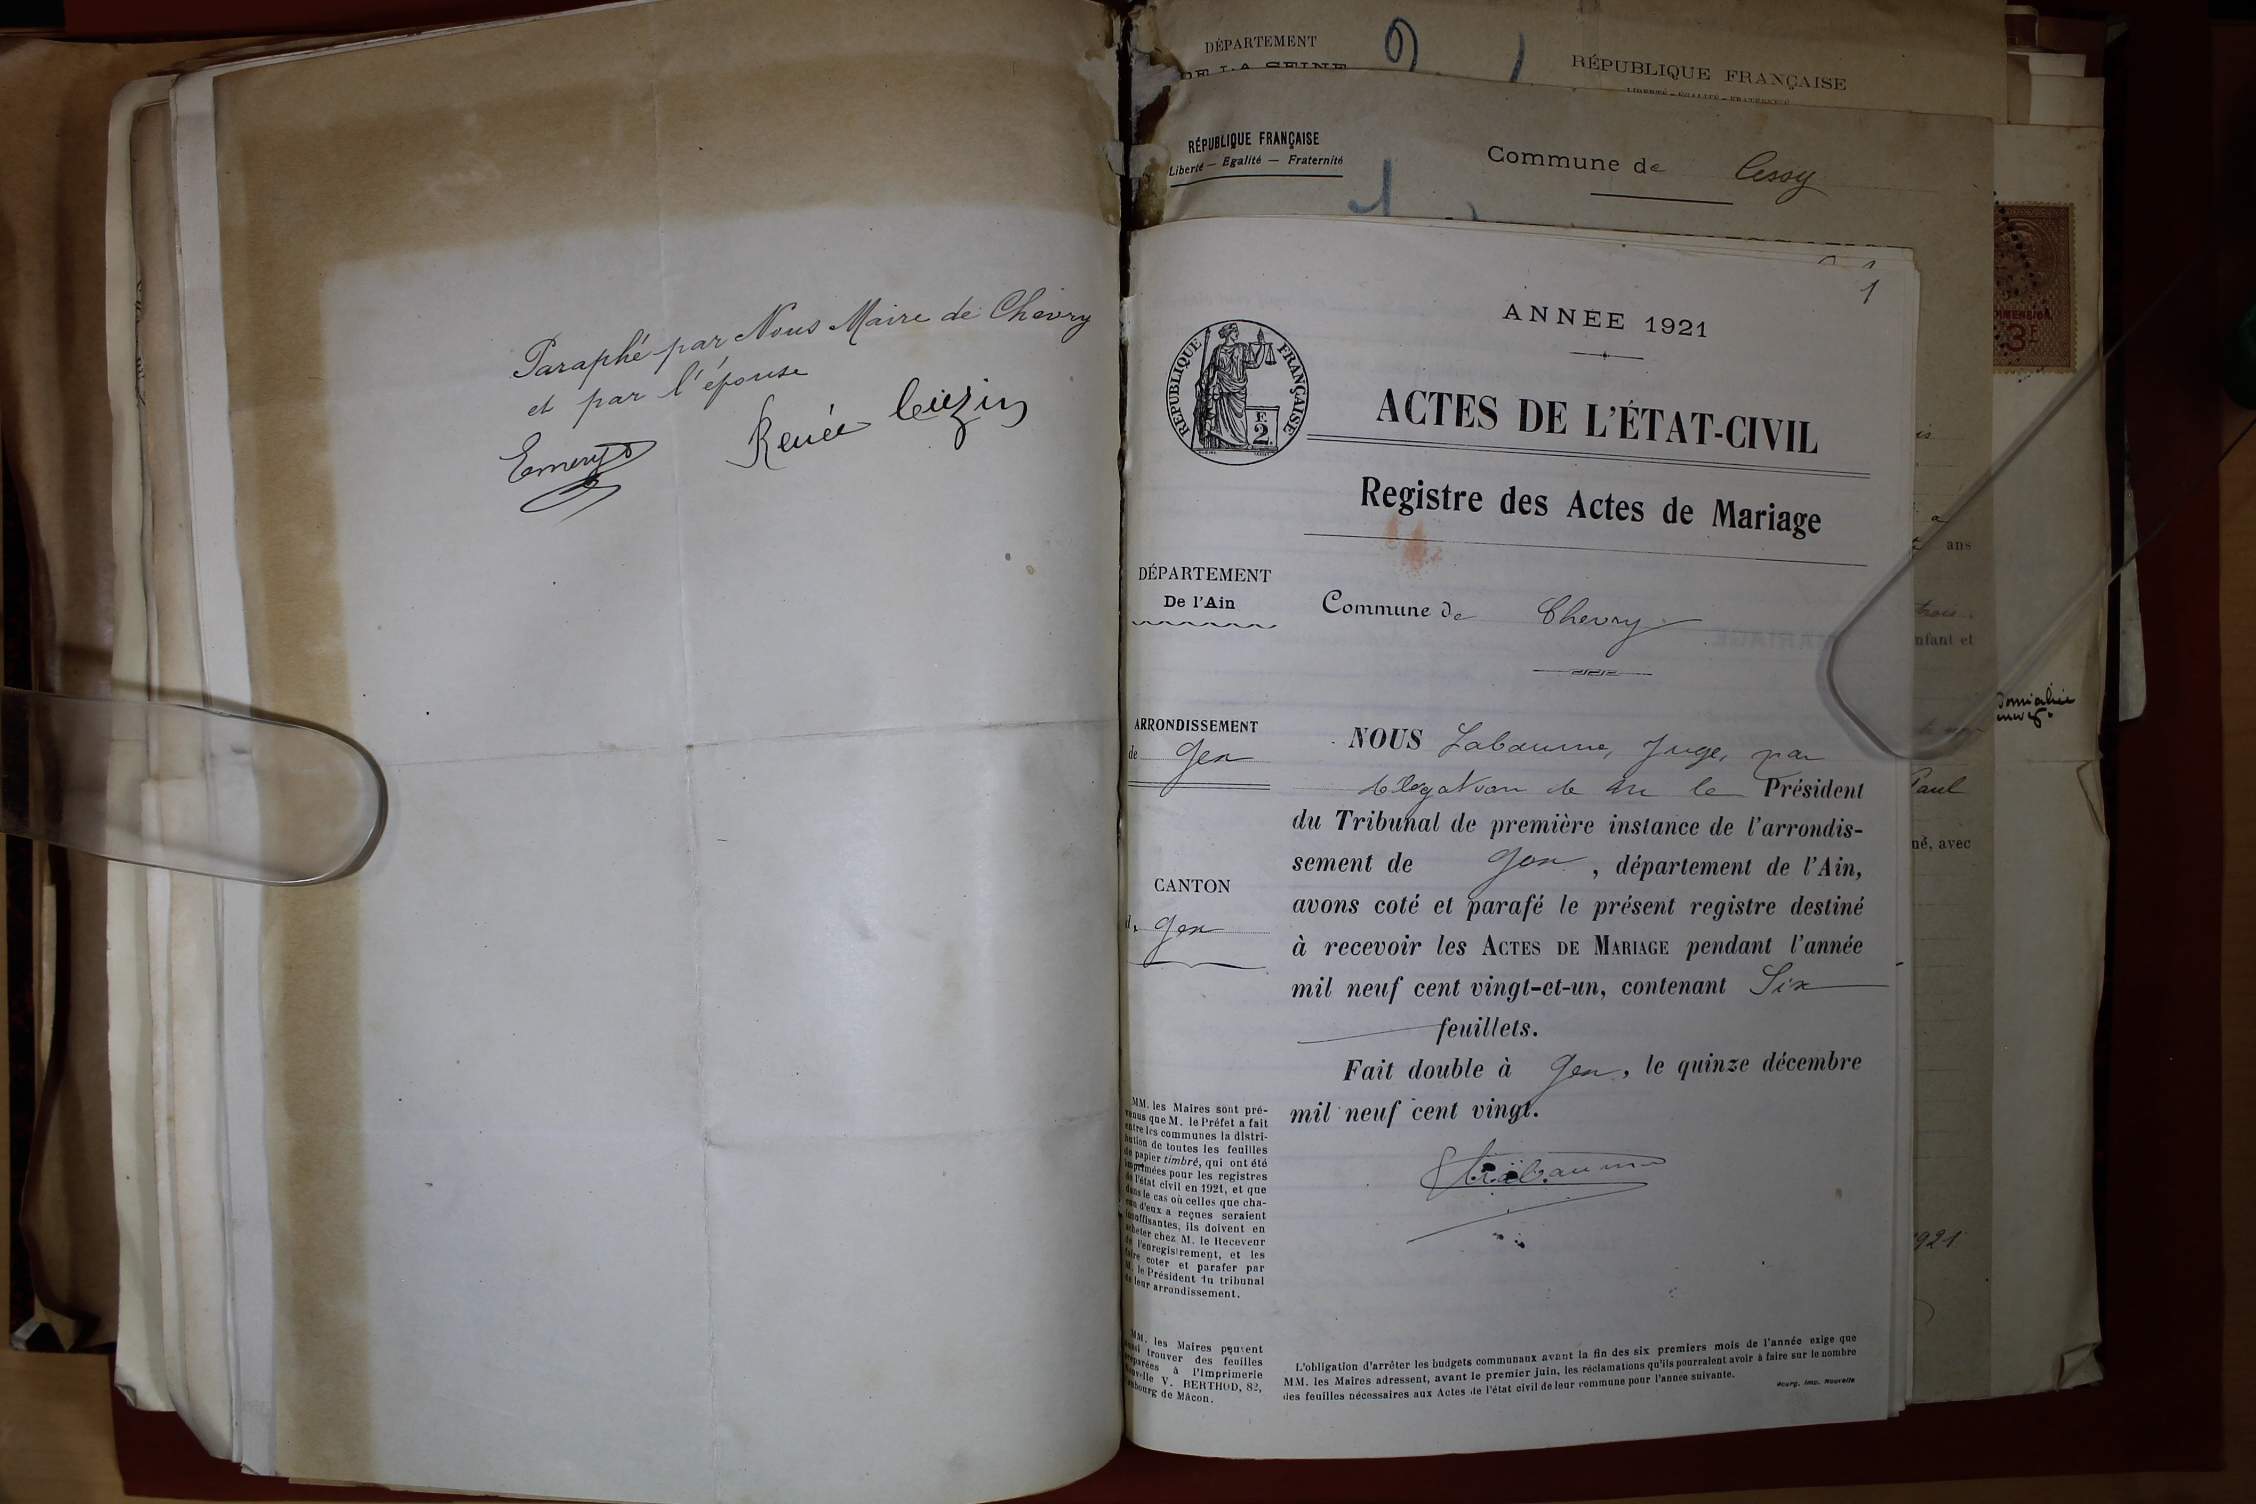 Paraphé par Nous Maire de Chevry
et par l'épouse
Emery
Renée Cuzin
DÉPARTEMENT
DE LA SEINE
RÉPUBLIQUE FRANÇAISE
LIBERTÉ - ÉGALITÉ - FRATERNITÉ
RÉPUBLIQUE FRANÇAISE
Liberté — Egalité — Fraternité
Commune de Cessy
1
ANNÉE 1921
RÉPUBLIQUE FRANÇAISE
2
F.
ACTES DE L'ÉTAT-CIVIL
Registre des Actes de Mariage
DÉPARTEMENT
De l'Ain
Commune de Chevry
ARRONDISSEMENT
de Gex
CANTON
de Gex
NOUS Labaume, Juge, par
délégation de Mr le Président
du Tribunal de première instance de l'arrondis-
sement de Gex, département de l'Ain,
avons coté et parafé le présent registre destiné
à recevoir les ACTES DE MARIAGE pendant l'année
mil neuf cent vingt-et-un, contenant Six
feuillets.
Fait double à Gex, le quinze décembre
mil neuf cent vingt.
Labaume
MM. les Maires sont pré-
venus que M. le Préfet a fait
entre les communes la distri-
bution de toutes les feuilles
de papier timbré, qui ont été
imprimées pour les registres
de l'état civil en 1921, et que
dans le cas où celles que cha-
cun d'eux a reçues seraient
insuffisantes, ils doivent en
acheter chez M. le Receveur
de l'enregistrement, et les
faire coter et parafer par
M. le Président du tribunal
de leur arrondissement.
MM. les Maires peuvent
aussi trouver des feuilles
préparées à l'Imprimerie
Nouvelle V. BERTHOD, 82,
faubourg de Mâcon.
L'obligation d'arrêter les budgets communaux avant la fin des six premiers mois de l'année exige que
MM. les Maires adressent, avant le premier juin, les réclamations qu'ils pourraient avoir à faire sur le nombre
des feuilles nécessaires aux Actes de l'état civil de leur commune pour l'année suivante.
Bourg, Imp. Nouvelle
DIMENSION
3F
ans
enfant et
Domiciliée
Paul
né, avec
1921